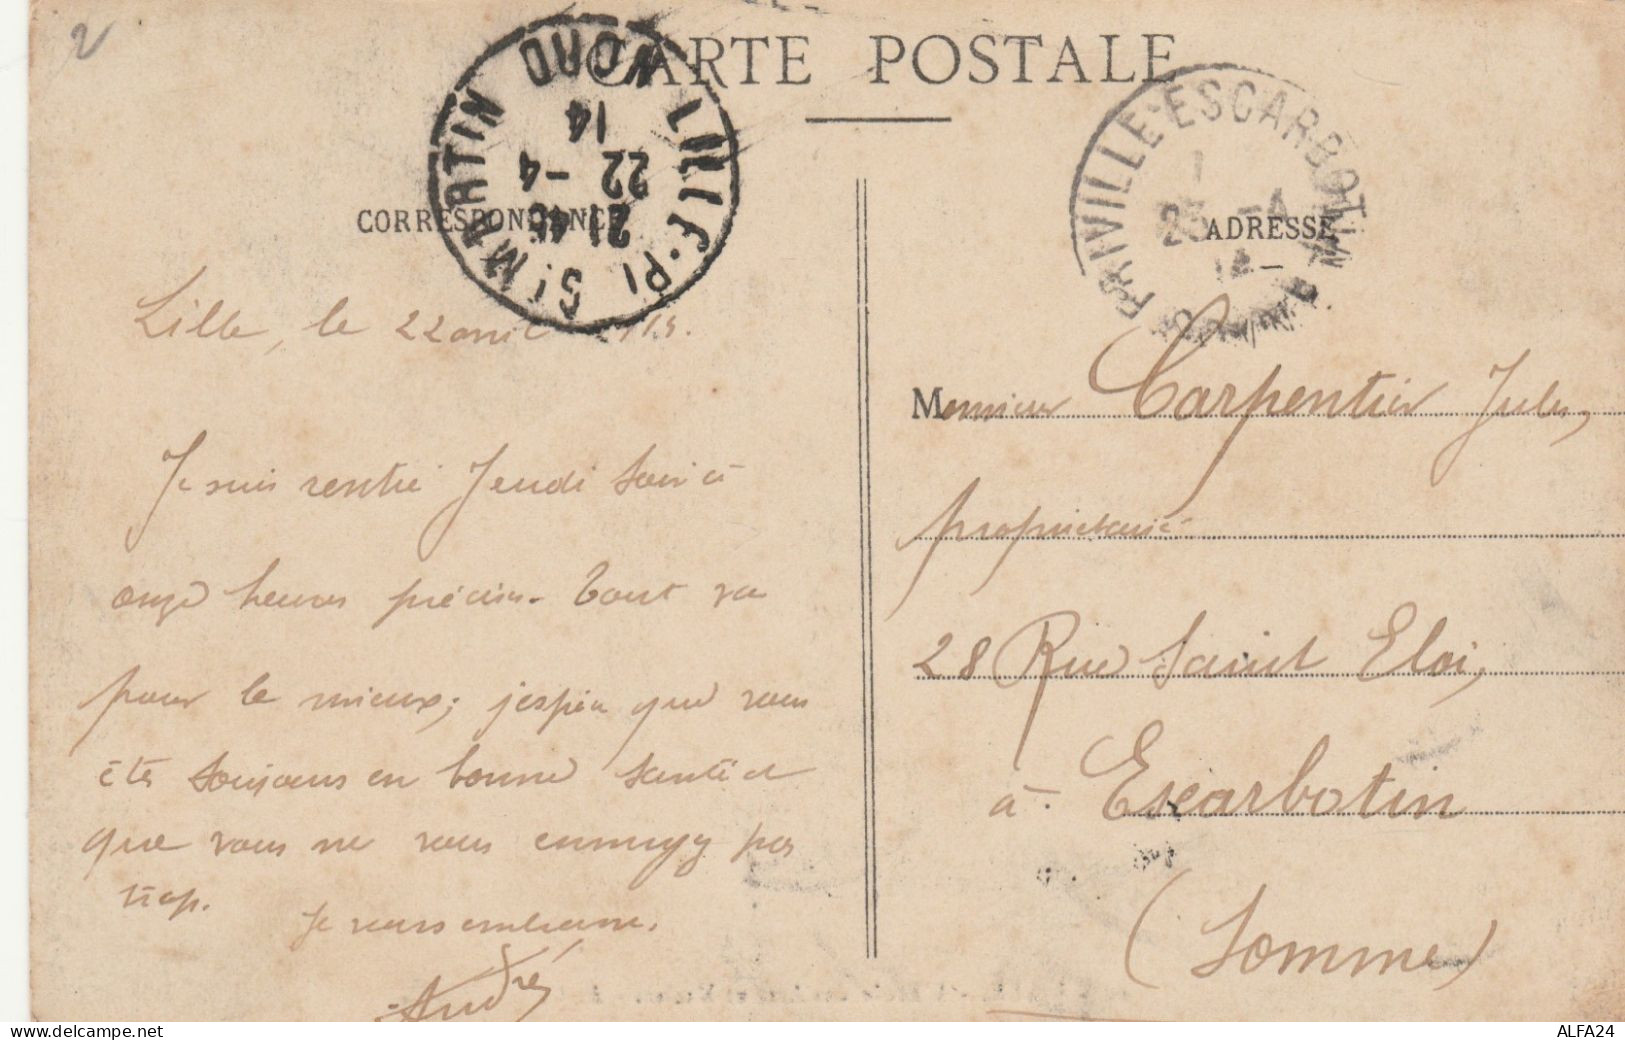 2
CARTE POSTALE
LILLE-Pl St MARTIN NORD
21 40
22 -4
14
FRIVILLE-ESCARBOTIN
23 -4
14
CORRESPONDANCE
ADRESSE
Lille, le 22 avril
Je suis rentré Jeudi soir à
onze heures précises. Tout va
pour le mieux; j'espère que vous
êtes toujours en bonne santé et
que vous ne vous ennuyez pas
trop.
Je vous embrasse.
André
Monsieur Carpentier Jules,
propriétaire
28 Rue Saint Eloi,
à Escarbotin
(Somme)
www.delcampe.net
ALFA24